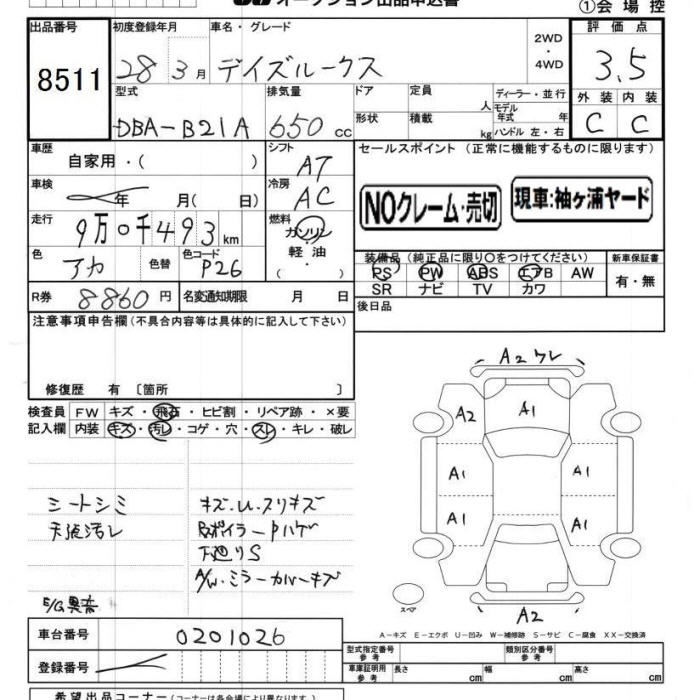 オークション出品申込書
①会場控
出品番号
8511
初度登録年月
28 3月
車名・グレード
デイズルークス
2WD
・
4WD
評価点
3.5
外装 内装
C C
型式
DBA-B21A
排気量
650 cc
ドア
形状
定員
人
積載
kg
ディーラー・並行
モデル年式 年
ハンドル 左・右
車歴
自家用・( )
シフト
AT
車検
年 月( 日)
冷房
AC
走行
9万0千493km
燃料
ガソリン
軽油
( ・ )
色
アカ
色替
色コード
P26
R券
8860円
名変通知期限 月 日
セールスポイント (正常に機能するものに限ります)
NOクレーム・売切
現車:袖ヶ浦ヤード
装備品 (純正品に限り○をつけてください)
新車保証書
PS PW ABS エアB AW
SR ナビ TV カワ
有・無
後日品
注意事項申告欄(不具合内容等は具体的に記入して下さい)
修復歴 有 〔箇所 〕
検査員
記入欄
FW キズ・飛石・ヒビ割・リペア跡・×要
内装 キズ・汚レ・コゲ・穴・スレ・キレ・破レ
シートシミ
天張汚レ
キズ.U.スリキズ
Rスポイラー P ハゲ
下廻りS
A/W.ミラーカバーキズ
E/G異音
A2 ワレ
A2
A1
A1
A1
A1
A1
スペア
A2
A-キズ E-エクボ U-凹み W-補修跡 S-サビ C-腐食 XX-交換済
車台番号
0201026
登録番号
型式指定番号
参考
類別区分番号
参考
車庫証明用
参考
長さ cm 幅 cm 高さ cm
希望出品コーナー (コーナーは各会場により異なります)